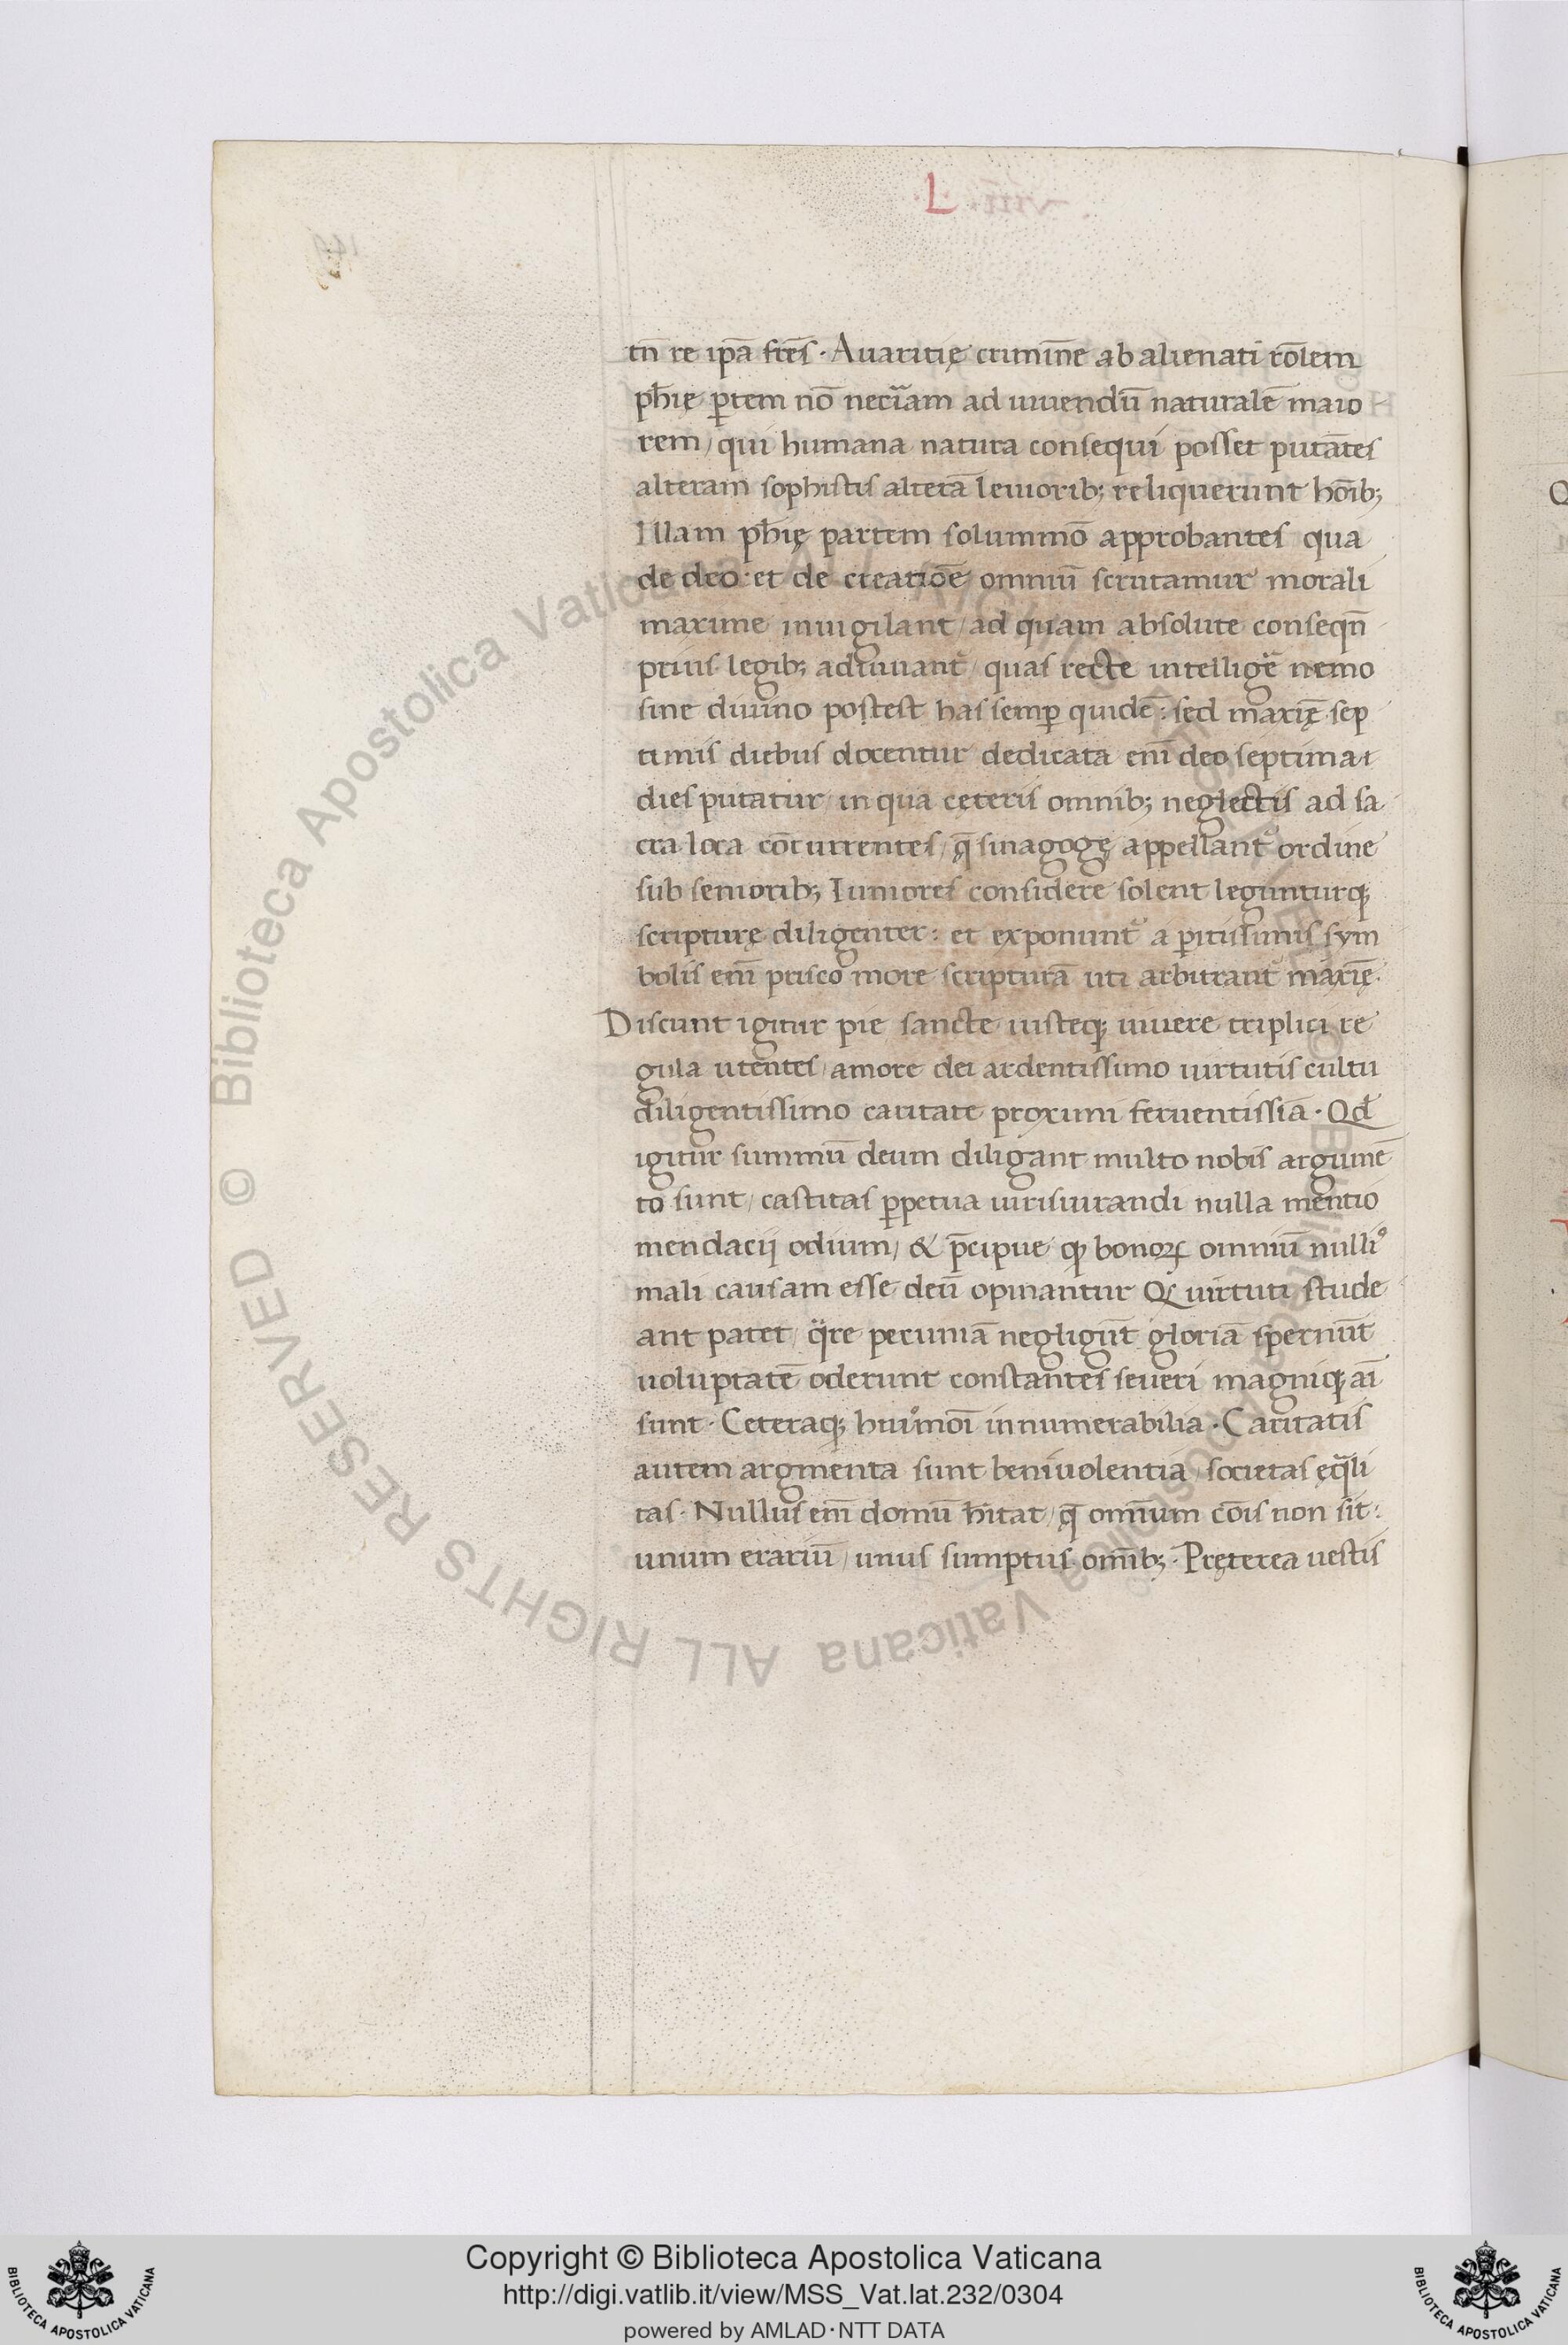 L
tn̄ re ip̄a fr̄es · Auaritię crimine ab alienati rōlem
ph̄ie ꝑtem nō necr̄iam ad uiuendū naturalē maio
rem / qui humana natura consequi posset putātes
alteram sophistis alterā leuiorib; reliquerunt hōib;
Illam ph̄ię partem solummō approbantes qua
de deo : et de creatiōe omniū scrutamur morali
maxime inuigilant / ad quam absolute conseqn̄
prius legib; adiuuant᷑ / quas recte intellige᷑ nemo
sine diuino postest has semꝑ quidē : sed maxīę sep
timis diebus docentur dedicata em̄ deo septima
dies putatur / in qua ceteris omnib; neglectis ad sa
cra loca cōcurrentes / q̄ sinagogę appellant᷑ ordine
sub seniorib; Iuniores considere solent legunturq;
scripturę diligenter : et exponunt᷑ a ꝑitissimis sym
bolis em̄ prisco more scripturā uti arbitrant᷑ maxīę ·
Discunt igitur pie sancte iusteq; uiuere triplici re
gula utentes / amore dei ardentissimo uirtutis cultu
diligentissimo caritate proximi feruentissīa · Qd̄
igitur summū deum diligant multo nobis argumē
to sunt / castitas ꝑpetua iurisiurandi nulla mentio
mendacij odium / & p̄cipue ꝙ bonoꝝ omniū nulliꝰ
mali causam esse deū opinantur Q uirtuti stude
ant patet / qͣre pecuniā negligūt gloriā spernūt
uoluptatē oderunt constantes seueri magniq; aī
sunt · Ceteraq; huiꝰmoī innumerabilia · Caritatis
autem argmenta sunt beniuolentia / societas eqͣli
tas · Nullus em̄ domū h̄itat / q̄ omnium cōis non sit :
unum erariū / unus sumptus om̄ib; · Pręterea uestis
Copyright © Biblioteca Apostolica Vaticana
http://digi.vatlib.it/view/MSS_Vat.lat.232/0304
powered by AMLAD·NTT DATA
BIBLIOTECA APOSTOLICA VATICANA
BIBLIOTECA APOSTOLICA VATICANA
© Biblioteca Apostolica Vaticana ALL RIGHTS RESERVED